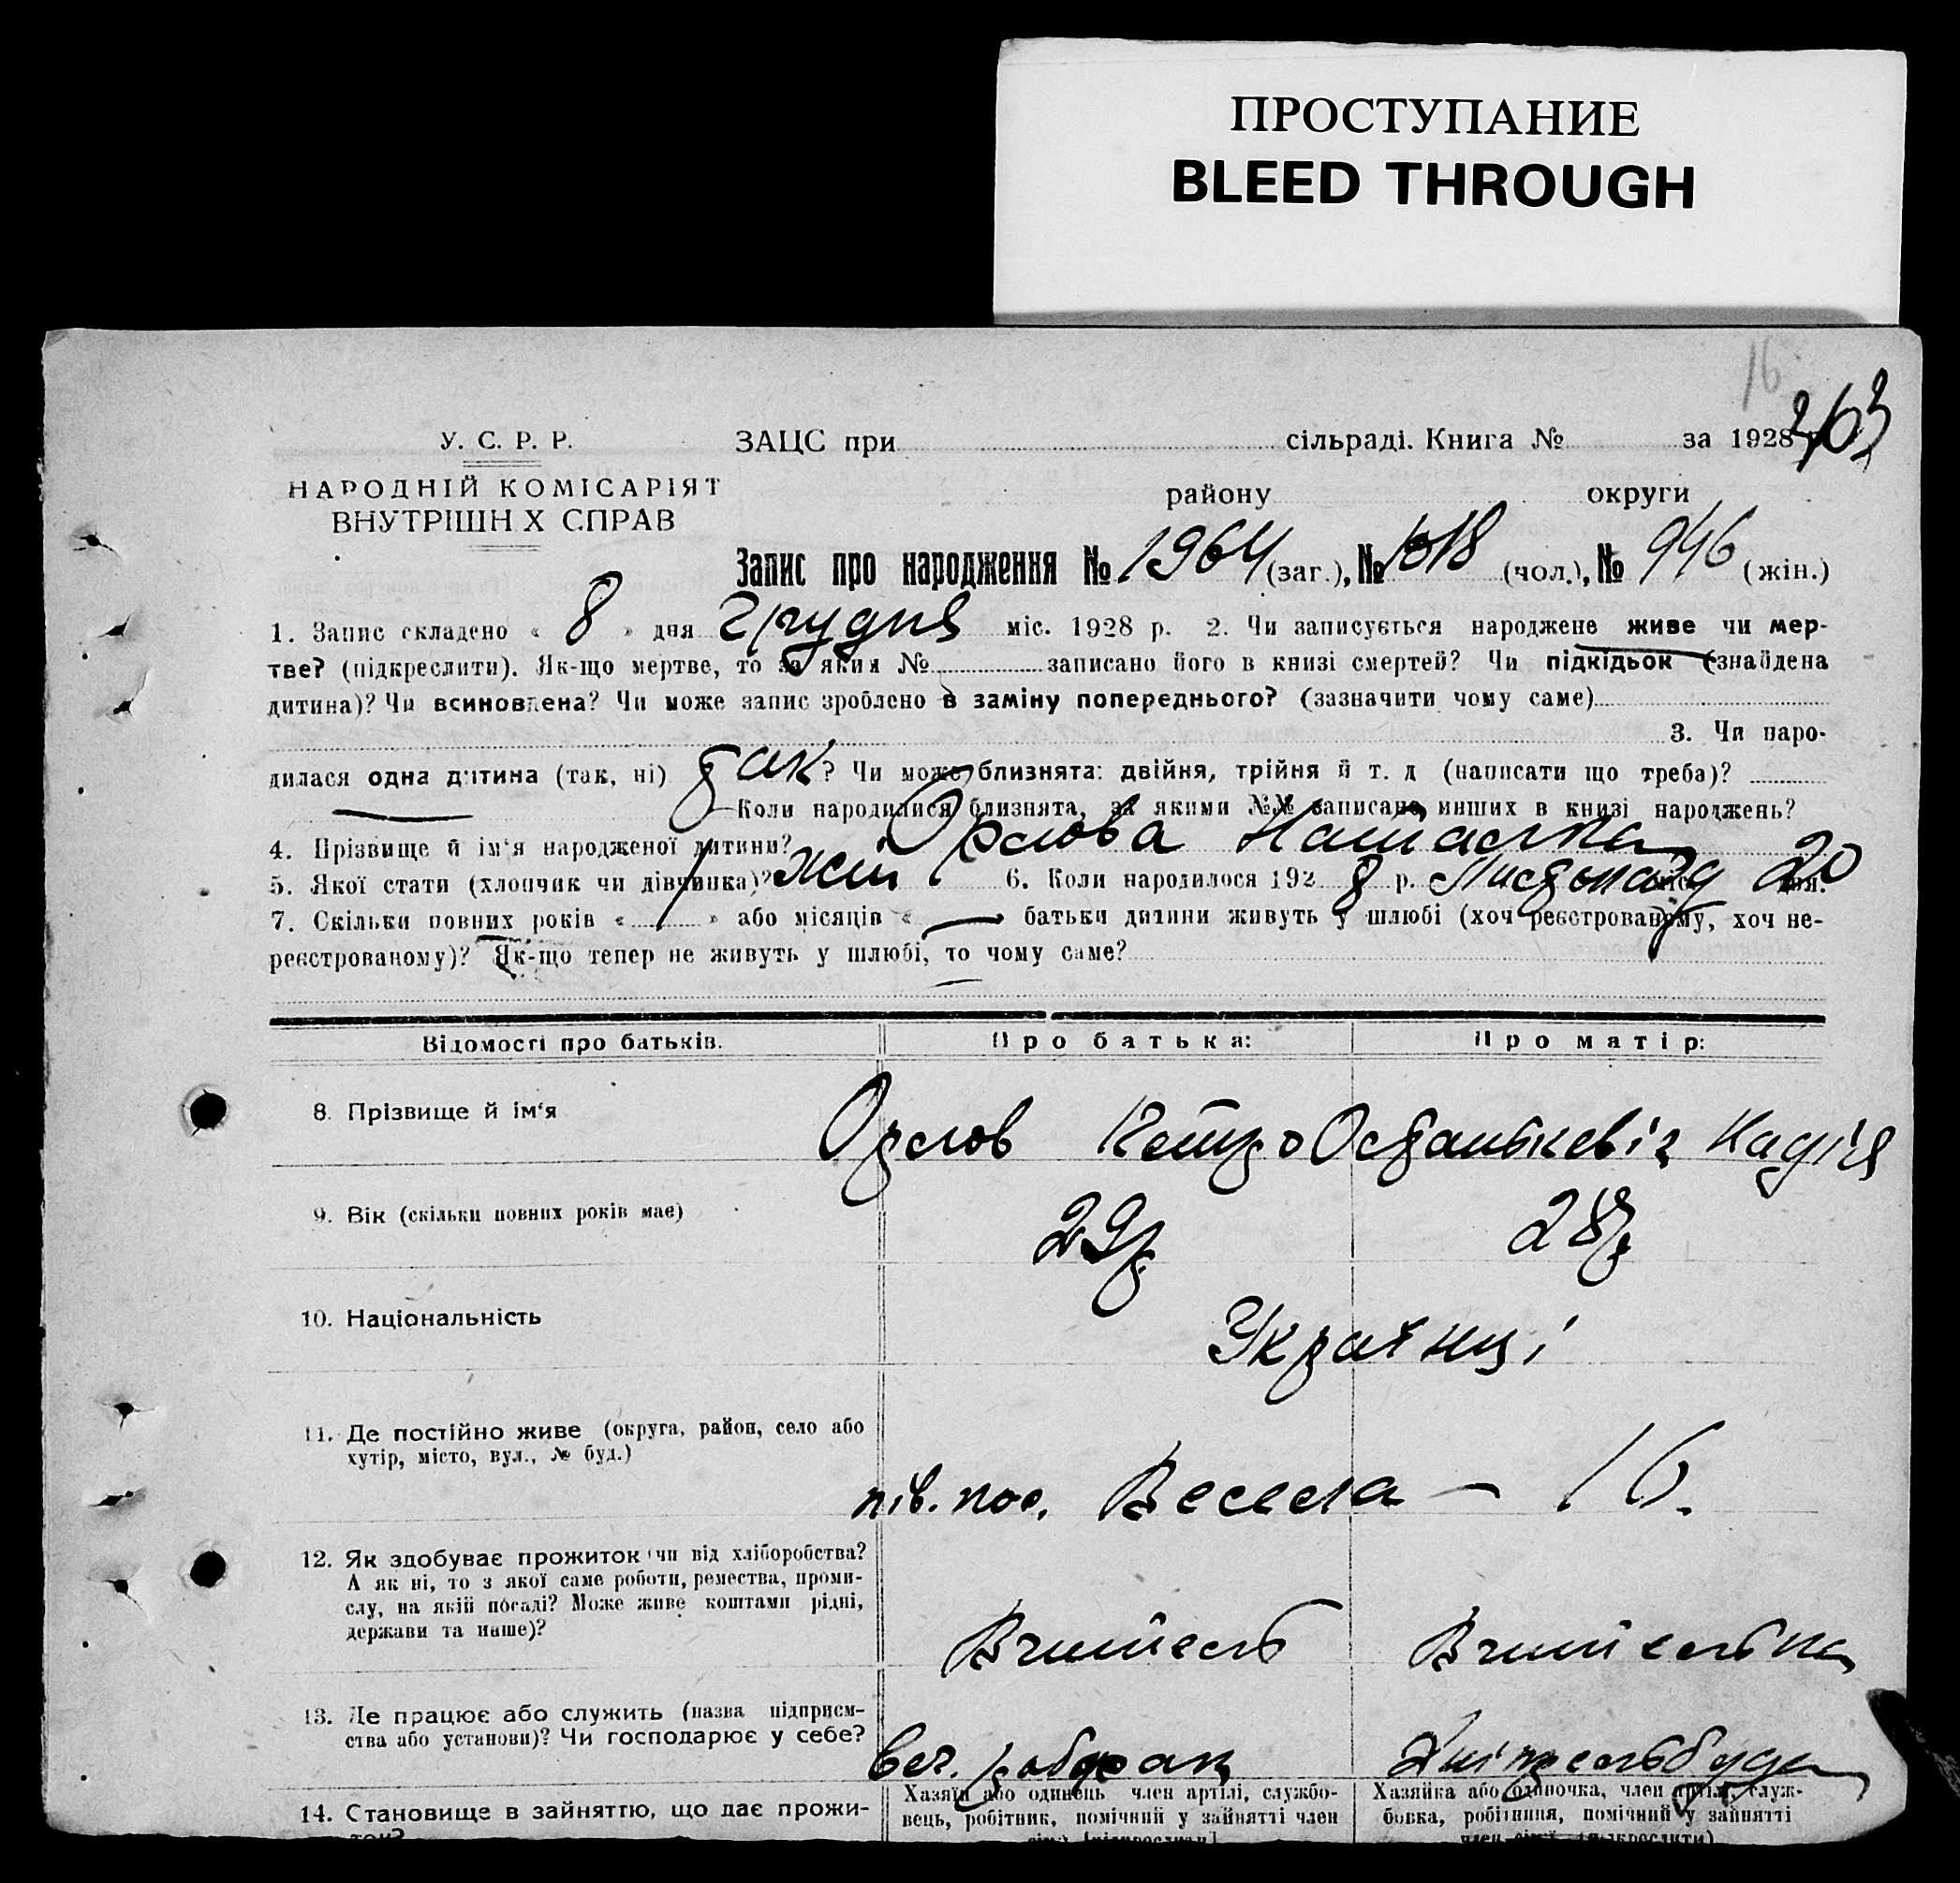 ПРОСТУПАНИЕ
BLEED THROUGH
16
263
У. С. Р. Р.
ЗАЦС при сільраді. Книга № за 1928
НАРОДНІЙ КОМІСАРІЯТ
району округи
ВНУТРІШН Х СПРАВ
Запис про народження № 1964 (заг.), № 1018 (чол.), № 946 (жін.)
1. Запис складено « 8 » дня Грудня міс. 1928 р. 2. Чи записується народжене живе чи мер-
тве? (підкреслити). Як-що мертве, то за яким № записано його в книзі смертей? Чи підкідьок (знайдена
дитина)? Чи всиновлена? Чи може запис зроблено в заміну попереднього? (зазначити чому саме)
3. Чи наро-
дилася одна дитина (так, ні) так? Чи може близнята: двійня, трійня й т. д (написати що треба)?
Коли народилися близнята, за якими №№ записано инших в книзі народжень?
4. Прізвище й ім'я народженої дитини? Орлова Наталка
5. Якої стати (хлопчик чи дівчинка)? жін 6. Коли народилося 192 8 р. Листопад 20 дня.
7. Скільки повних років « 1 » або місяців « — » батьки дитини живуть у шлюбі (хоч реєстрованому, хоч не-
реєстрованому)? Як-що тепер не живуть у шлюбі, то чому саме?
Відомості про батьків. Про батька: Про матір:
8. Прізвище й ім'я Орлов Петро Остапькевіч Надія
9. Вік (скільки повних років має) 29р 28р
10. Національність Українці
11. Де постійно живе (округа, район, село або
хутір, місто, вул., № буд.)
пів. пос. Весела — 16.
12. Як здобуває прожиток (чи від хліборобства?
А як ні, то з якої саме роботи, ремества, проми-
слу, на якій посаді? Може живе коштами рідні,
держави та инше)?
Вчитель Вчителька
13. Де працює або служить (назва підприєм-
ства або установи)? Чи господарює у себе?
Веч. Дніпрельбуда
14. Становище в зайняттю, що дає прожи-
ток?
Хазяїн або одинець член артілі, службо-
вець, робітник, помічний у зайнятті член
сім'ї (підкреслити)
Хазяйка або одиночка, член артілі, служ-
бовка, робітниця, помічний у зайнятті
член сім'ї (підкреслити)